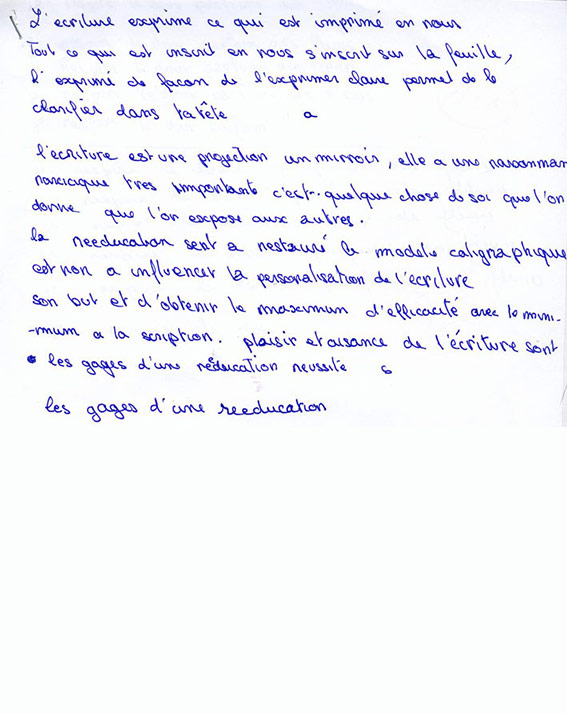 L'ecriture exprime ce qui est imprimé en nous
Tout ce qui est inscrit en nous s'inscrit sur la feuille,
l'exprimé de facon de l'exprimer claire permet de le
clarifier dans ta tête a
l'écriture est une projection un mirroir, elle a une
narciaque tres important c'est quelque chose de soi que l'on
donne que l'on expose aux autres.
la reeducation sert a restauré le modele caligraphique
est non a influencer la personalisation de l'ecriture
son but et d'obtenir le maximum d'efficacité avec le mini-
-mum a la scription. plaisir et aisance de l'écriture sont
les gages d'une rééducation reussite
les gages d'une reeducation